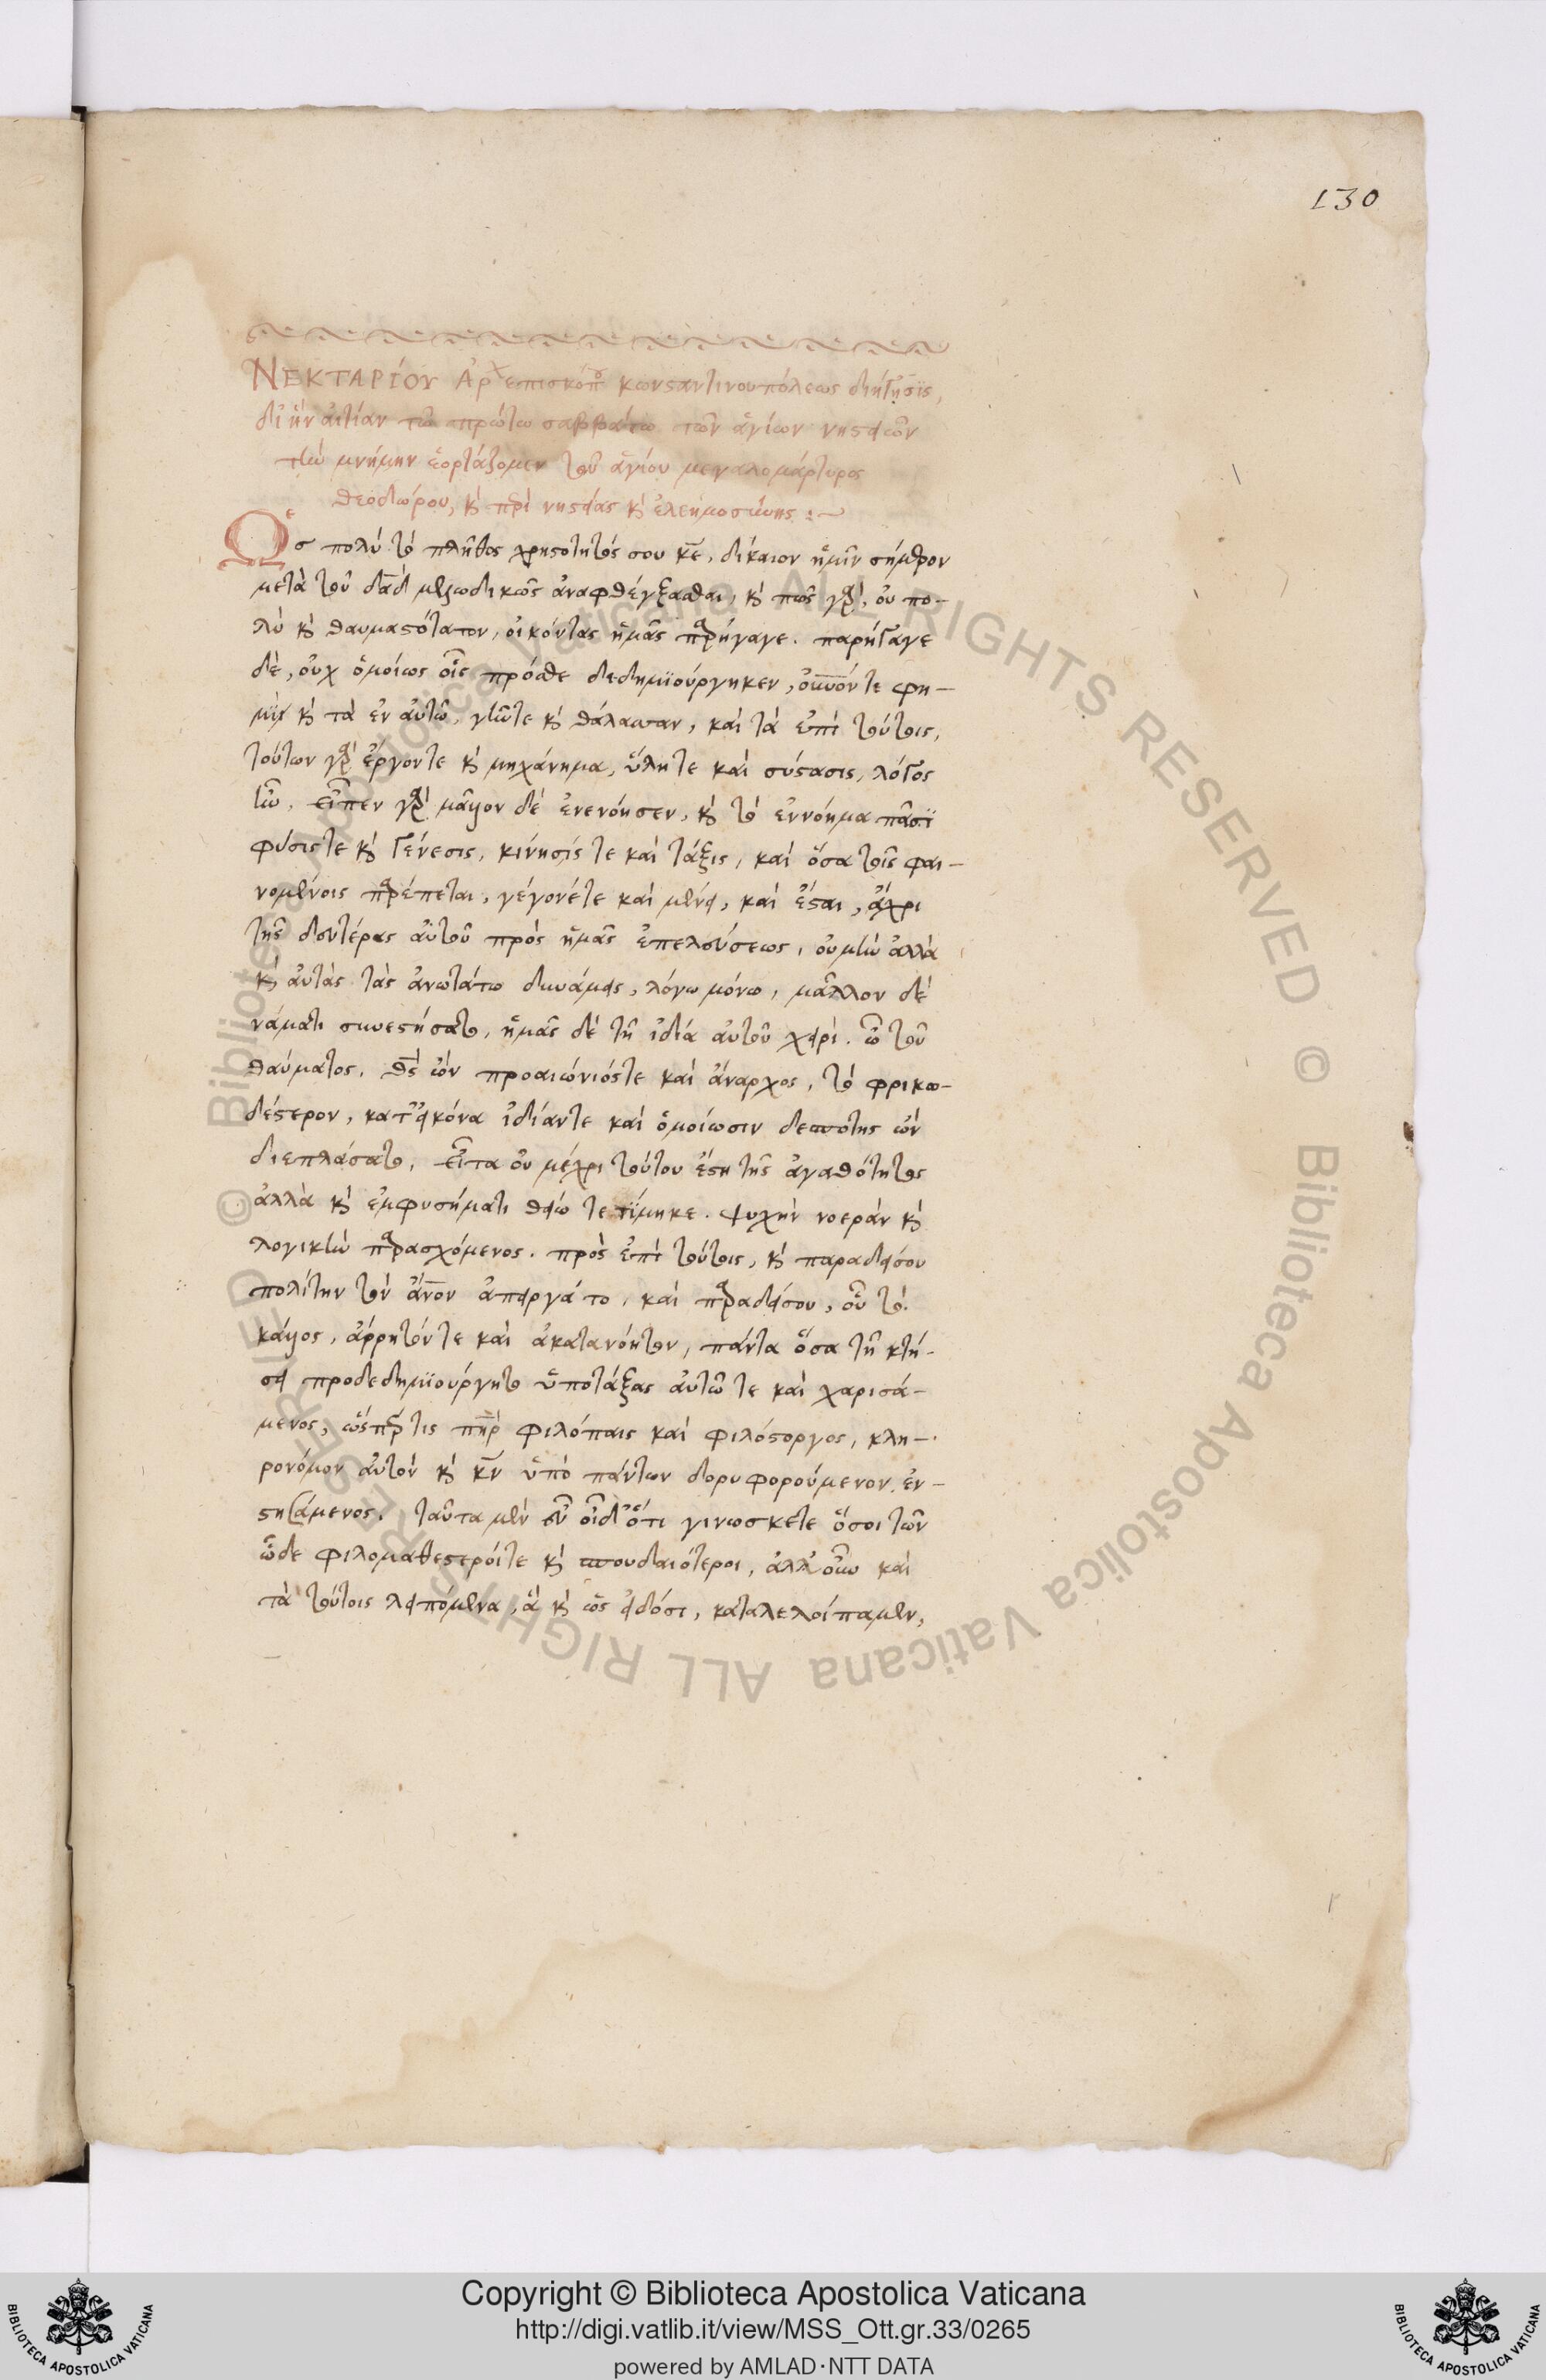 130
ΝΕΚΤΑΡΊΟΥ Ἀρχεπισκόπου κωνσταντινουπόλεως διήγησϊς,
δι ἣν ἀιτίαν τῶ πρώτω σαββάτω τῶν ἁγίων νηστειῶν
τὴν μνήμην ἑορτάζομεν τοῦ ἁγίου μεγαλομάρτυρος
θεοδώρου, κὶ περὶ νηστείας κὶ ἐλεημοσύνης :~
Ὡς πολὺ τὸ πλῆθος χρηστότητός σου κε̄, δίκαιον ἡμῖν σήμερον
μετὰ τοῦ δᾱδ μελωδικῶς ἀναφθέγξασθαι, κὶ πῶς γὰρ, οὐ πο-
λὺ κὶ θαυμαστότατον, οὐκ όντας ἡμᾶς παρήγαγε. παρήγαγε
δὲ, οὐχ ὁμοίως οἷς πρόσθε δεδημϊούργηκεν, οὐνόν τε φη-
μὶ κὶ τὰ ἐν ἀυτῶ, γῆν τε κὶ θάλασσαν, καὶ τὰ ἐπὶ τούτοις,
τούτων γὰρ ἔργον τε κὶ μηχάνημα, ὕλη τε καὶ σύστασις, λόγος
ἦν. εἶπεν γὰρ μᾶλλον δὲ ἐνενόησεν, κὶ τὸ ἐννόημα πᾶσϊ
φύσις τε κὶ γένεσις, κίνησίς τε καὶ τάξις, καὶ ὅσα τοῖς φαι-
νομένοις παρέπεται, γέγονέ τε καὶ μένει, καὶ ἔσται, ἄχρι
τῆς δευτέρας ἀυτοῦ πρὸς ἡμᾶς ἐπελεύσεως, οὐ μὴν ἀλλὰ
κὶ ἀυτὰς τὰς ἀνωτάτω δυνάμεις, λόγω μόνω, μᾶλλον δὲ
νάματι συνεστήσατο, ἡμᾶς δὲ τῆ ἰδία ἀυτοῦ χειρὶ. ὢ τοῦ
θαύματος. θς̄ ὢν προαιώνιός τε καὶ ἄναρχος, τὸ φρικω-
δέστερον, κατ' εἰκόνα ἰδίαν τε καὶ ὁμοίωσιν δεσπότης ὢν
διεπλάσατο, εἶτα οὐ μέχρι τούτου ἔστη τῆς ἀγαθότητος
ἀλλὰ κὶ ἐμφυσήματι θείω τετίμηκε. ψυχὴν νοερὰν κὶ
λογικὴν παρασχόμενος. πρὸς ἐπὶ τούτοις, κὶ παραδείσου
πολίτην τὸν ἄνον̄ ἀπειργάσατο, καὶ παραδείσου, οὗ τὸ
κάλλος, ἀρρητόν τε καὶ ἀκατανόητον, πάντα ὅσα τῆ κτή-
σει προδεδημϊούργητο ὑποτάξας ἀυτῶ τε καὶ χαρισά-
μενος, ὥσπερ τις πηρ̄ φιλόπαις καὶ φιλόστοργος, κλη-
ρονόμον ἀυτὸν κὶ κν̄ ὑπὸ πάντων δορυφορούμενον ἐν-
στησάμενος. ταῦτα μὲν οὖν οἶδ' ὅτι γινώσκετε ὅσοι τῶν
ὧδε φιλομαθέστεροί τε κὶ σπουδαιότεροι, ἀλλ' οὔπω καὶ
τὰ τούτοις λειπόμενα, ἃ κὶ ὡς εἰδόσι, καταλελοίπαμεν,
Copyright © Biblioteca Apostolica Vaticana
http://digi.vatlib.it/view/MSS_Ott.gr.33/0265
powered by AMLAD·NTT DATA
BIBLIOTECA APOSTOLICA VATICANA
BIBLIOTECA APOSTOLICA VATICANA
© Biblioteca Apostolica Vaticana ALL RIGHTS RESERVED © Biblioteca Apostolica Vaticana ALL RIGHTS RESERVED